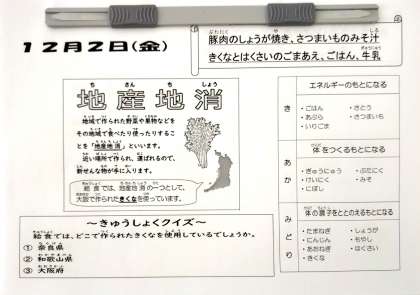 12月2日(金)
豚肉のしょうが焼き、さつまいものみそ汁
きくなとはくさいのごまあえ、ごはん、牛乳
ち さん ち しょう
地産地消
地域で作られた野菜や果物などを
その地域で食べたり使ったりするこ
とを「地産地消」といいます。
近い場所で作られ、運ばれるので、
新せんな物が手に入ります。
給食では、地産地消の一つとして、
大阪で作られたきくなを使っています。
~きゅうしょくクイズ~
給食では、どこで作られたきくなを使用しているでしょうか。
① 奈良県
② 和歌山県
③ 大阪府
エネルギーのもとになる
き
・ごはん ・さとう
・あぶら ・さつまいも
・いりごま
体をつくるもとになる
あか
・ぎゅうにゅう ・ぶたにく
・けいにく ・みそ
・にぼし
体の調子をととのえるもとになる
みどり
・たまねぎ ・しょうが
・にんじん ・もやし
・あおねぎ ・はくさい
・きくな